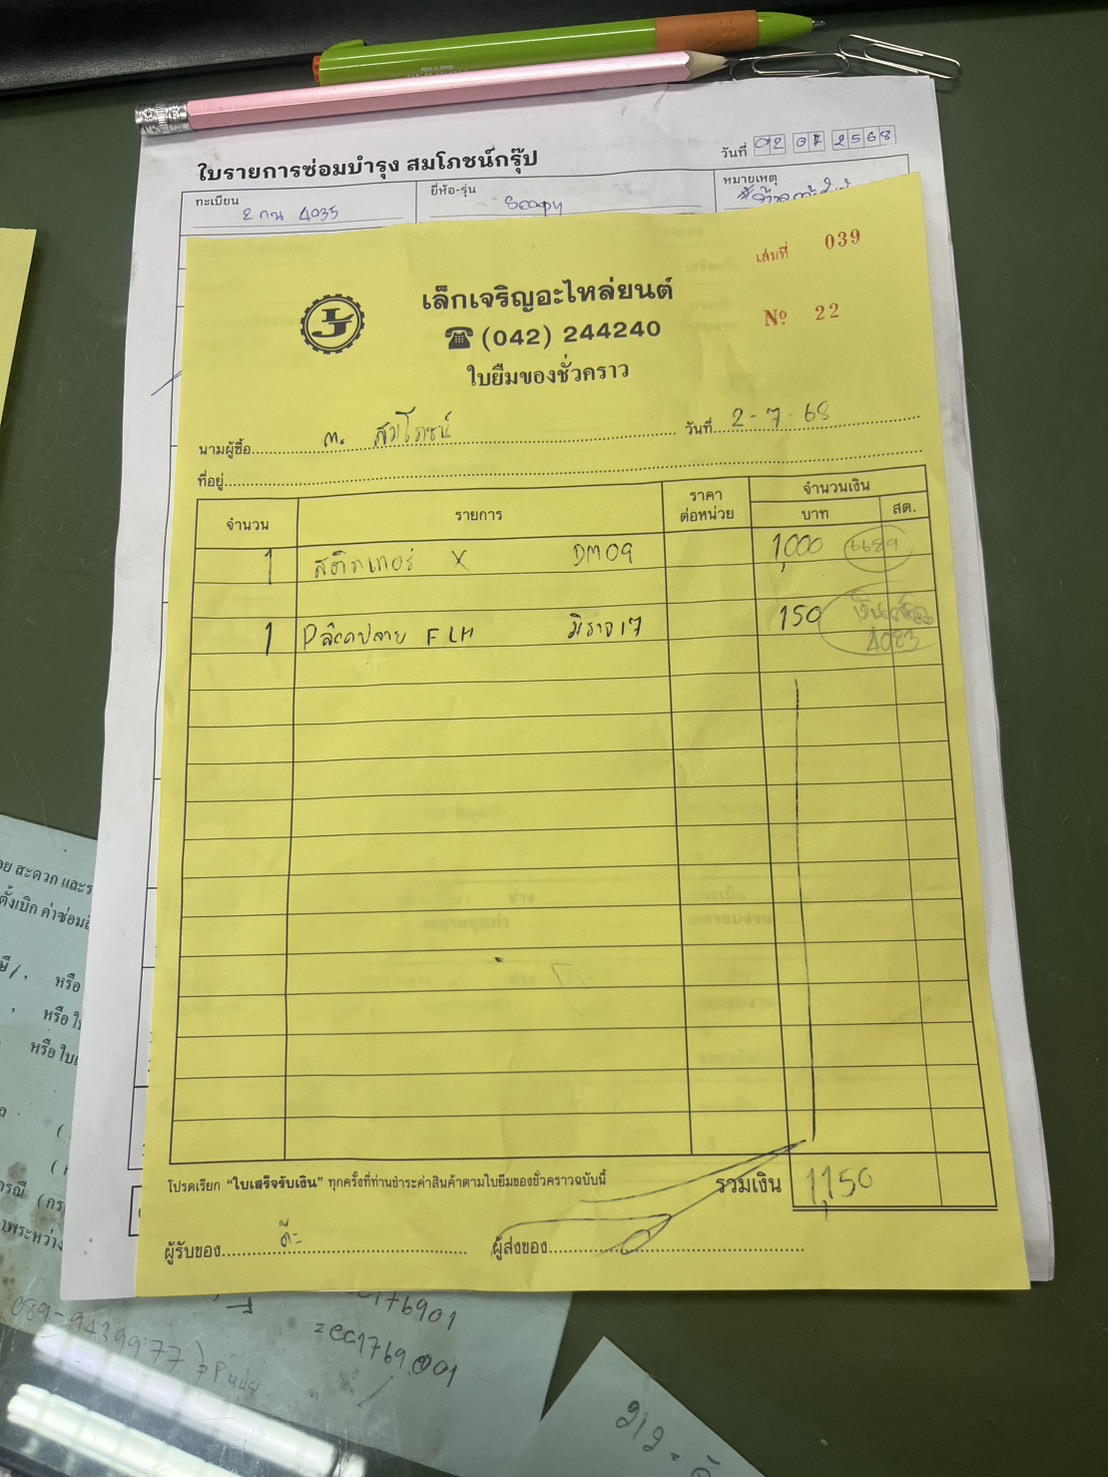 ใบรายการซ่อมบำรุง สมโภชน์กรุ๊ป
วันที่ 02 07 2568
ทะเบียน 2 กน 4035
ยี่ห้อ-รุ่น Scopy
หมายเหตุ
เล่มที่ 039
เล็กเจริญอะไหล่ยนต์
LJ
(042) 244240
Nº 22
ใบยืมของชั่วคราว
นามผู้ซื้อ ก. สมโภชน์ วันที่ 2-7-68
ที่อยู่
จำนวน รายการ ราคาต่อหน่วย จำนวนเงิน
บาท สต.
1 สติกเกอร์ X DM09 1,000 6689
1 Pล๊อคปลาย FLH มิราจ17 150
4083
โปรดเรียก "ใบเสร็จรับเงิน" ทุกครั้งที่ท่านชำระค่าสินค้าตามใบยืมของชั่วคราวฉบับนี้
รวมเงิน 1,150
ผู้รับของ ผู้ส่งของ
สะดวก และร
ตั้งเบิก ค่าซ่อม
หรือ
หรือ ใ
หรือ ใบ
089-9439977